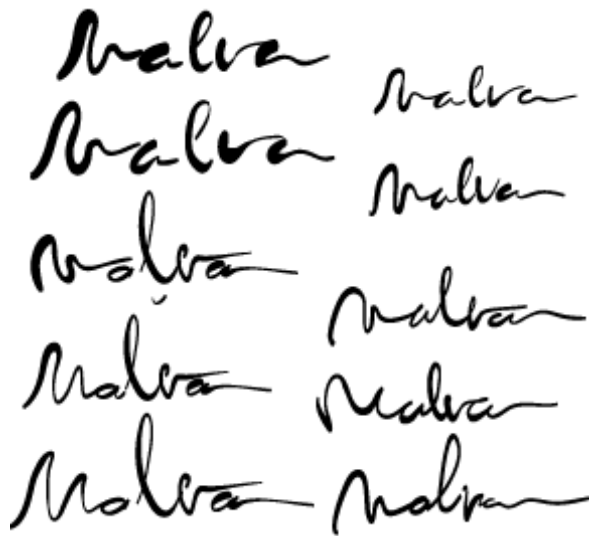 Malva
Malva
Malva
Malva
Malva
Malva
Malva
Malva
Malva
Malva